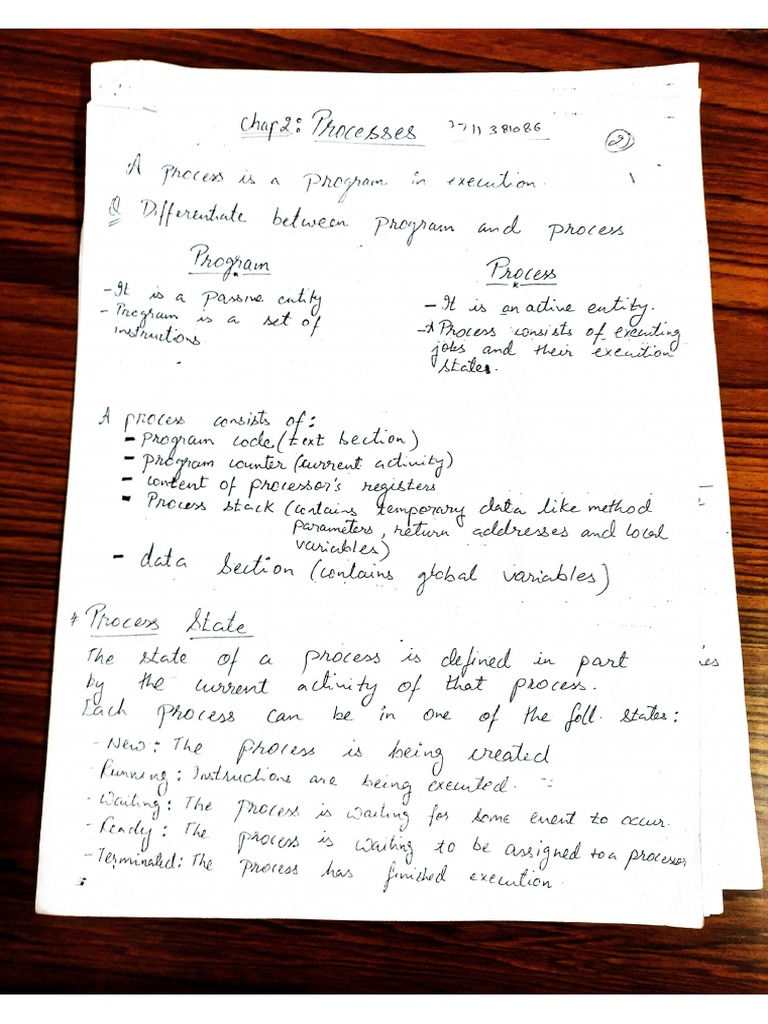 Chap 2: Processes
2)
A process is a program in execution.
Q Differentiate between program and process
Program
- It is a passive entity
- Program is a set of
instructions
Process
- It is an active entity.
- A Process consists of executing
jobs and their execution
states.
A process consists of:
- program code (text section)
- program counter (current activity)
- content of processor's registers
- Process stack (contains temporary data like method
parameters, return addresses and local
variables)
- data section (contains global variables)
* Process State
The state of a process is defined in part
by the current activity of that process.
Each process can be in one of the foll. states:
- New: The process is being created
- Running: Instructions are being executed.
- Waiting: The process is waiting for some event to occur.
- Ready: The process is waiting to be assigned to a processor
- Terminated: The process has finished execution.
ies